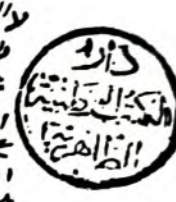 دار
الكتب الوطنية
الظاهرية